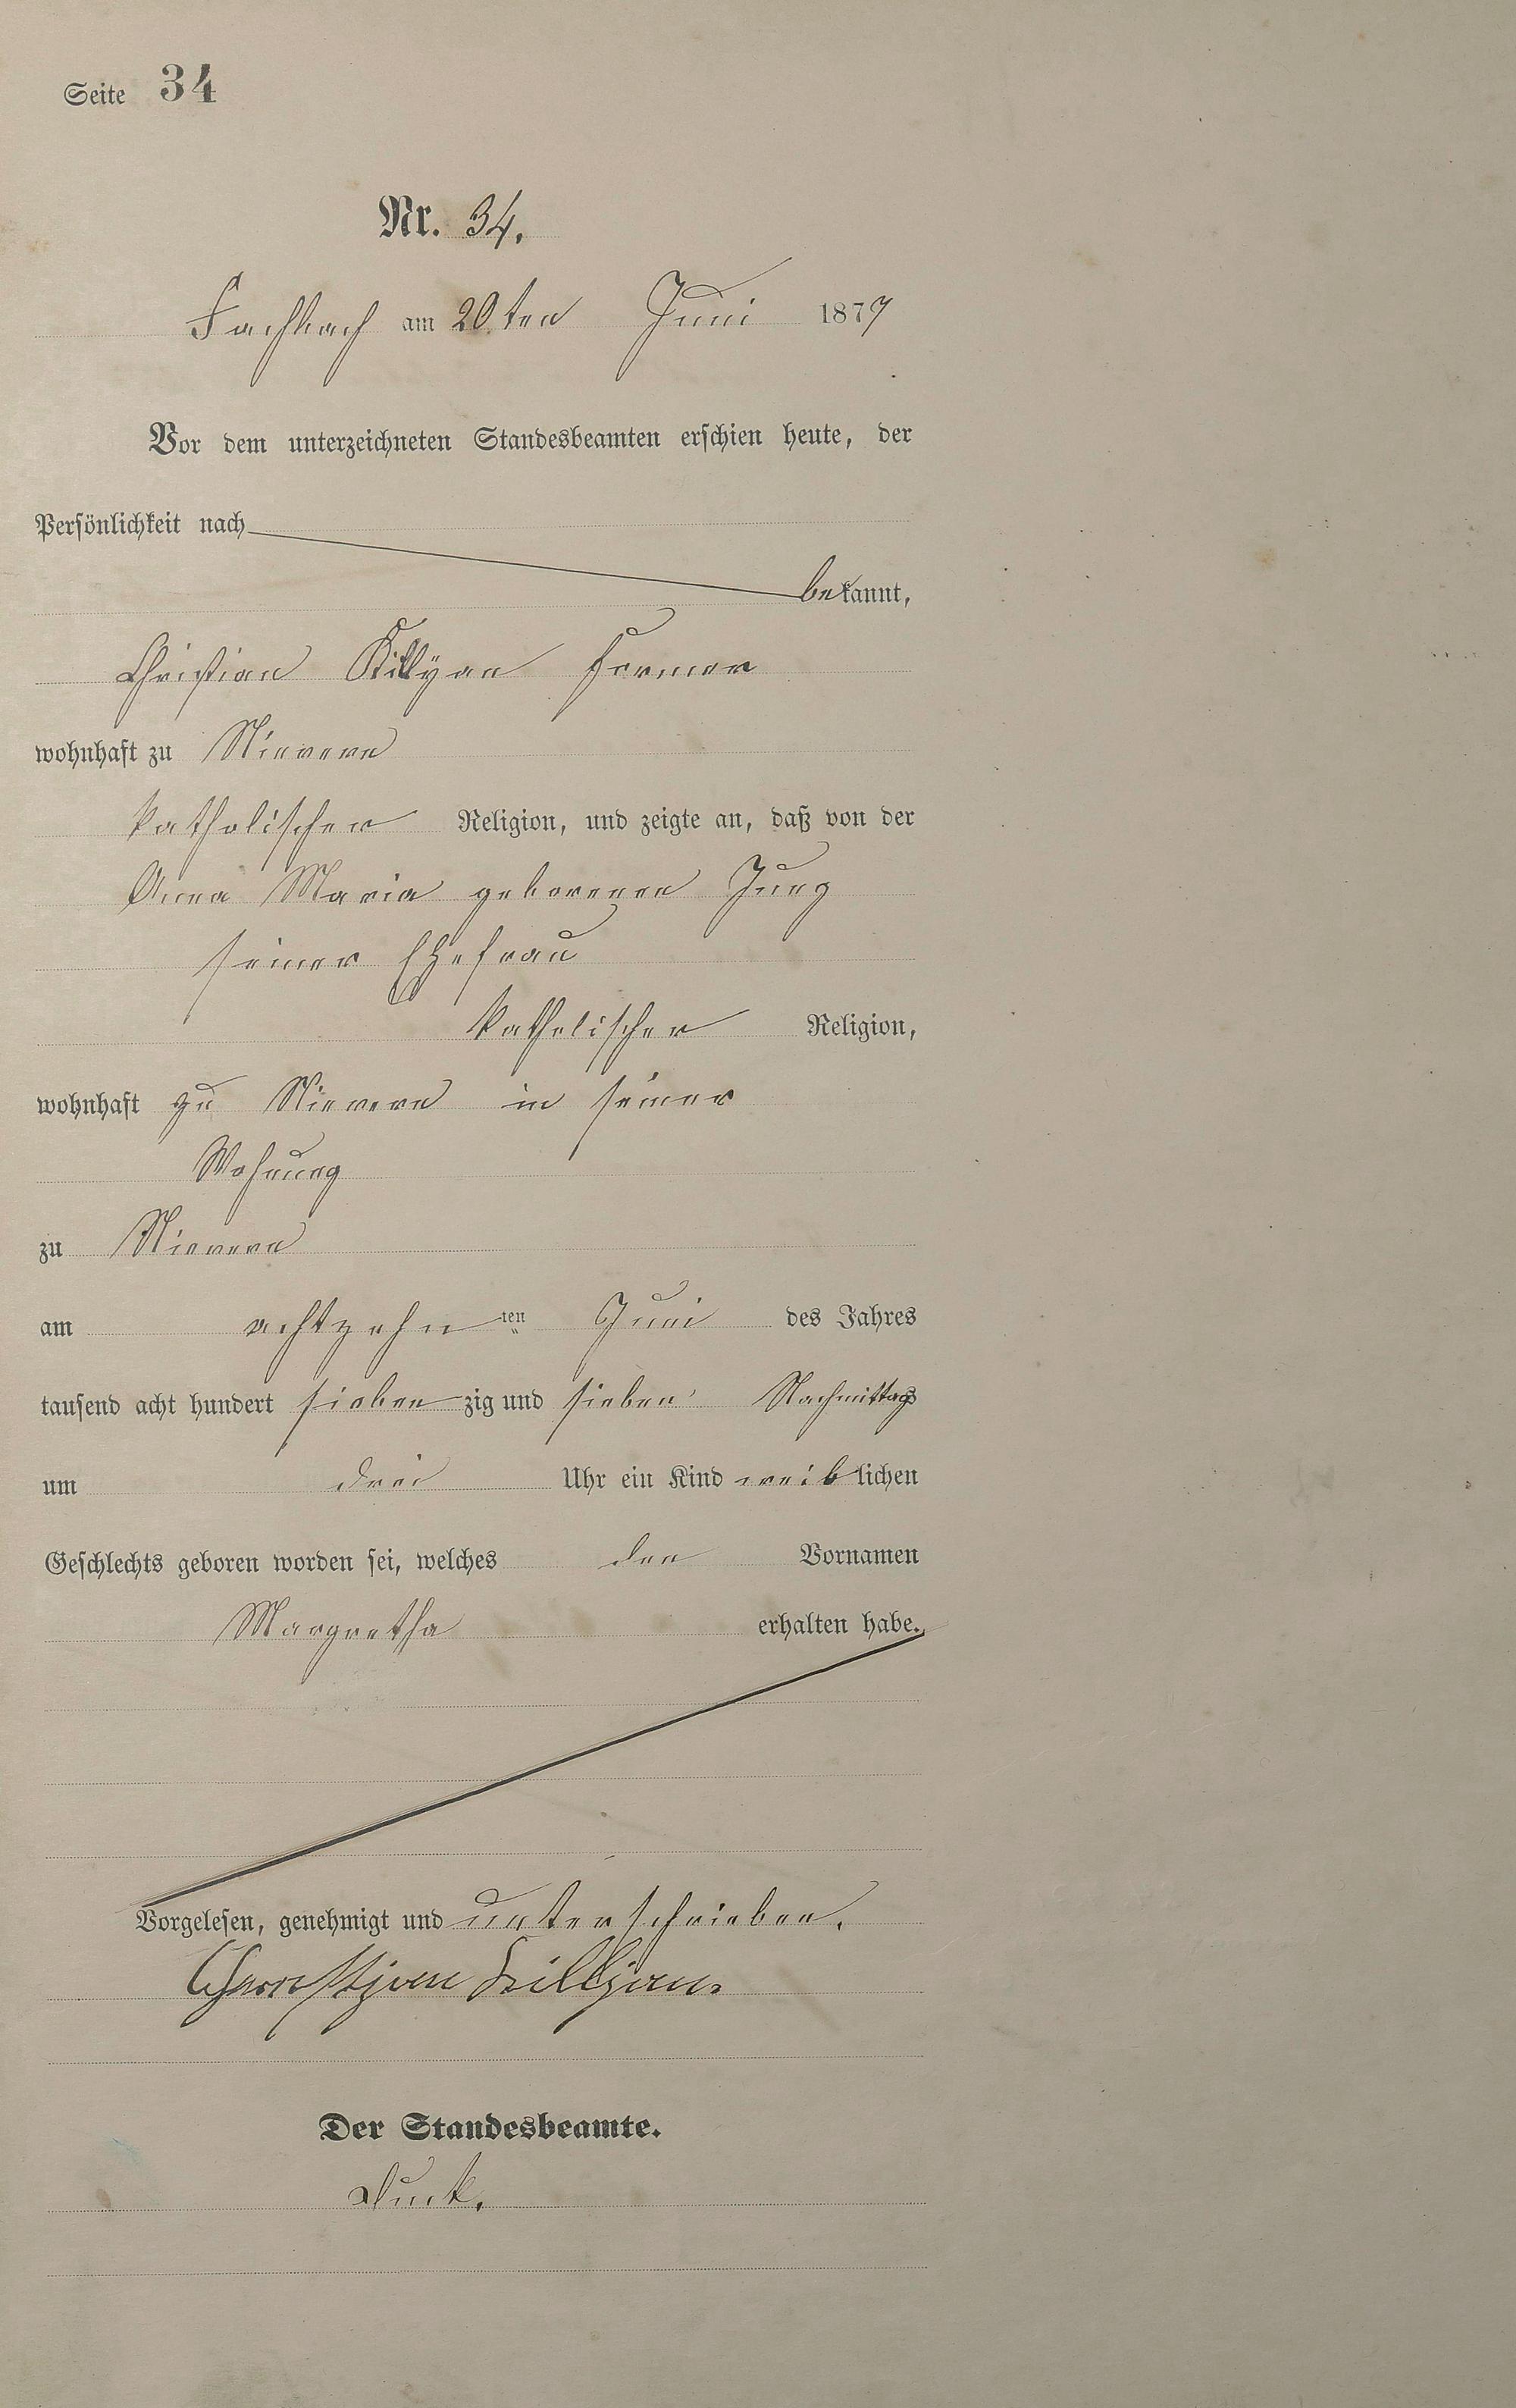 Seite 34
Nr. 34.
Fachbach am 20ten Juni 1877
Vor dem unterzeichneten Standesbeamten erschien heute, der
Persönlichkeit nach
bekannt,
Christian Killÿan Former
wohnhaft zu Nievern
katholischer Religion, und zeigte an, daß von der
Anna Maria geborenen Jung
seiner Ehefrau
katholischer Religion,
wohnhaft zu Nievern in seiner
Wohnung
zu Nievern
am achtzehn ten Juni des Jahres
tausend acht hundert sieben zig und sieben Nachmittags
um drei Uhr ein Kind weiblichen
Geschlechts geboren worden sei, welches den Vornamen
Margretha erhalten habe.
Vorgelesen, genehmigt und unterschrieben.
Killjan.
Der Standesbeamte.